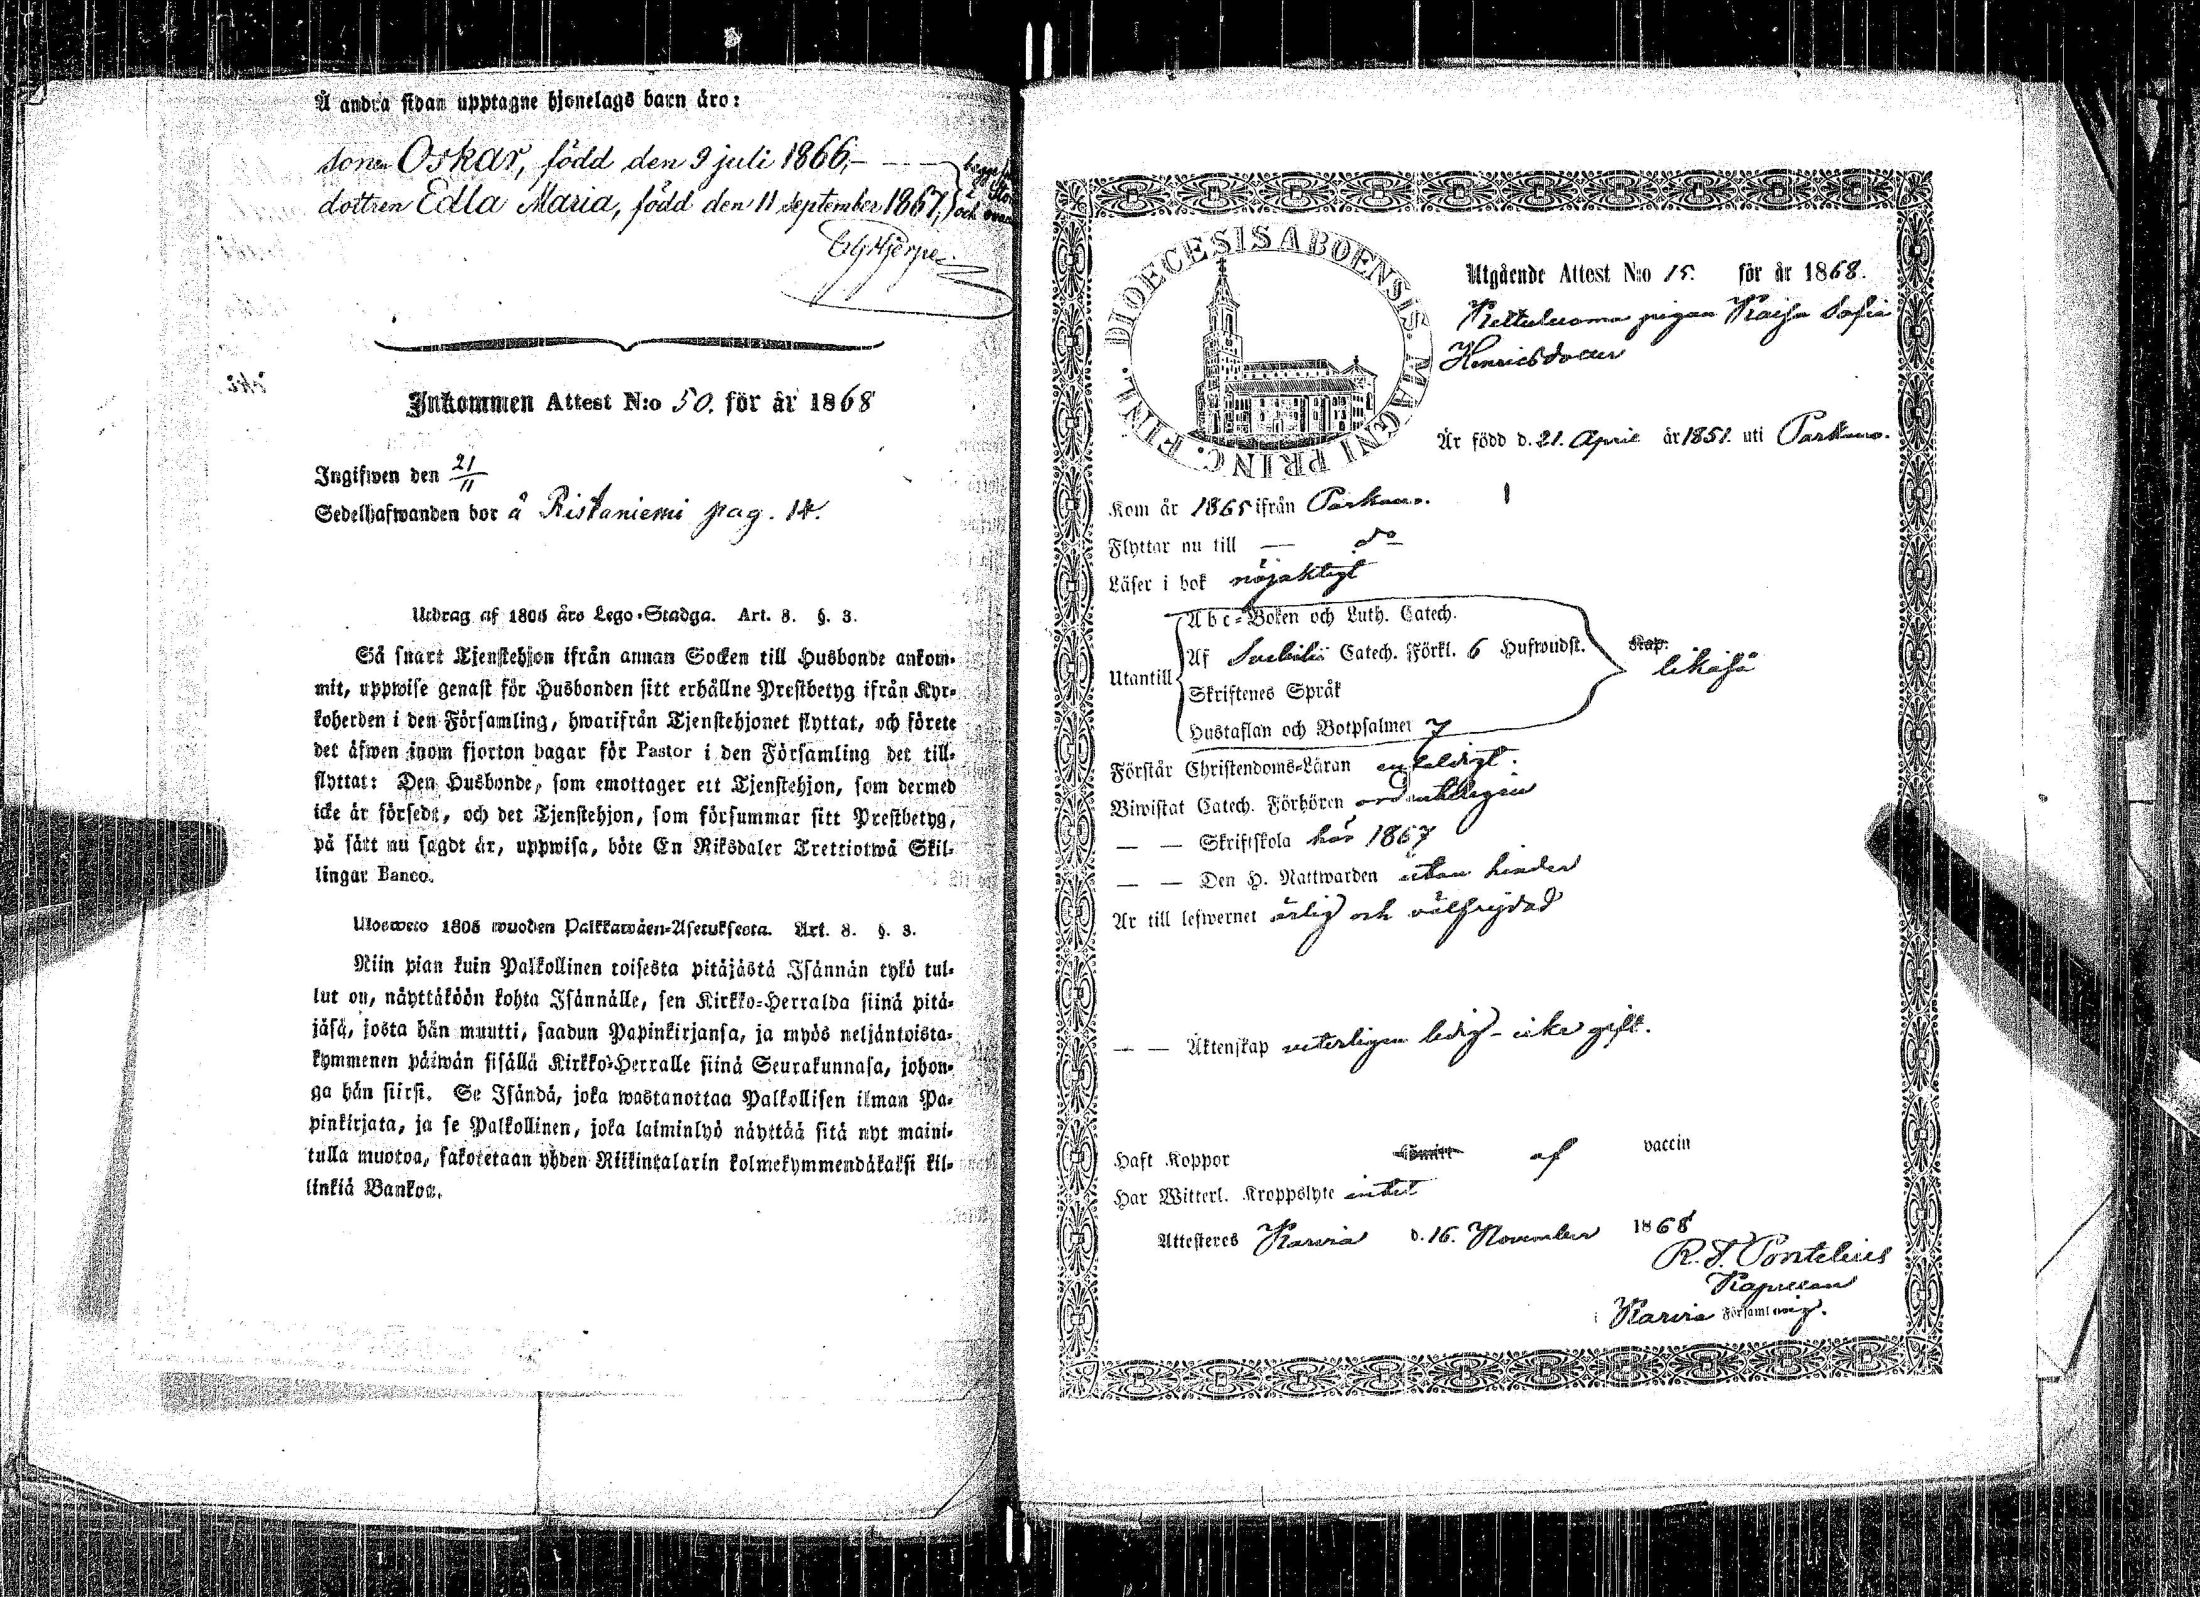 Å andra sidan upptagne hjonelags barn äro:
sonen Oskar, född den 9 juli 1866,
dottren Edla Maria, född den 11 september 1867, och
Inkommen Attest N:o 50. för år 1868
Ingifwen den 21/11
Sedelhafwanden bor å Ristaniemi pag. 14.
Utdrag af 1805 års Lego-Stadga. Art. 8. §. 3.
Så snart Tjenstehjon ifrån annan Socken till Husbonde ankom-
mit, uppwise genast för Husbonden sitt erhållne Prestbetyg ifrån Kyr-
koherden i den Församling, hwarifrån Tjenstehjonet flyttat, och förete
det äfwen inom fjorton dagar för Pastor i den Församling det till-
flyttat: Den Husbonde, som emottager ett Tjenstehjon, som dermed
icke är försedt, och det Tjenstehjon, som försummar sitt Prestbetyg,
på sätt nu sagdt är, uppwisa, böte En Riksdaler Trettiotwå Skil-
lingar Banco.
Ulosweto 1805 wuoden Palkkawäen-Asetuksesta. Art. 8. §. 3.
Niin pian kuin Palkollinen toisesta pitäjästä Isännän tykö tul-
lut on, näyttäköön kohta Isännälle, sen Kirkko-Herralda siinä pitä-
jäsä, josta hän muutti, saadun Papinkirjansa, ja myös neljäntoista-
kymmenen päiwän sisällä Kirkko-Herralle siinä Seurakunnasa, johon-
ga hän siirsi. Se Isändä, joka wastanottaa Palkollisen ilman Pa-
pinkirjata, ja se Palkollinen, joka laiminlyö näyttää sitä nyt maini-
tulla muotoa, sakotetaan yhden Riikintalarin kolmekymmendäkaksi kil-
linkiä Bankos.
DIOECESIS ABOENSIS. MAGNI PRINC. FINL.
Utgående Attest N:o 15. för år 1868.
Kettuluoma pigan Kaisa Sofia
Henricsdotter
Är född d. 21. April år 1851. uti Parkano.
Kom år 1865 ifrån Parkano.
Flyttar nu till — do
Läser i bok nöjaktigt
Utantill
Abc-Boken och Luth. Catech.
Af Svebilii Catech. Förkl. 6 Hufwudst. Kap.
likaså
Skriftenes Språk
Hustaflan och Botpsalmer 7
Förstår Christendoms-Läran enfaldigt.
Biwistat Catech. Förhören ordentligen
— — Skriftskola här 1867
— — Den H. Nattwarden utan hinder
Är till lefwernet ärlig och välfrejdad
— — Äktenskap veterligen ledig - icke gift.
Haft Koppor af vaccin
Har Witterl. Kroppslyte intet
Attesteres Karvia d. 16. November 1868
R. F. Pontelius
Kapellan
i Karvia Församling.